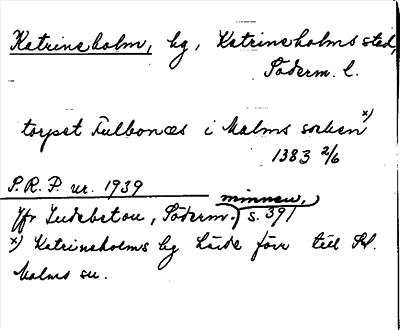 Katrineholm, hg, Katrineholms stad,
Söderm. l.
torpet Fulbonæs i Malms socken x)
1383 2/6
S.R.P. nr. 1939
Jfr Ludebeton, Söderm. minnen, s. 39/
x) Katrineholms hg hörde förr till St.
Malms sn.